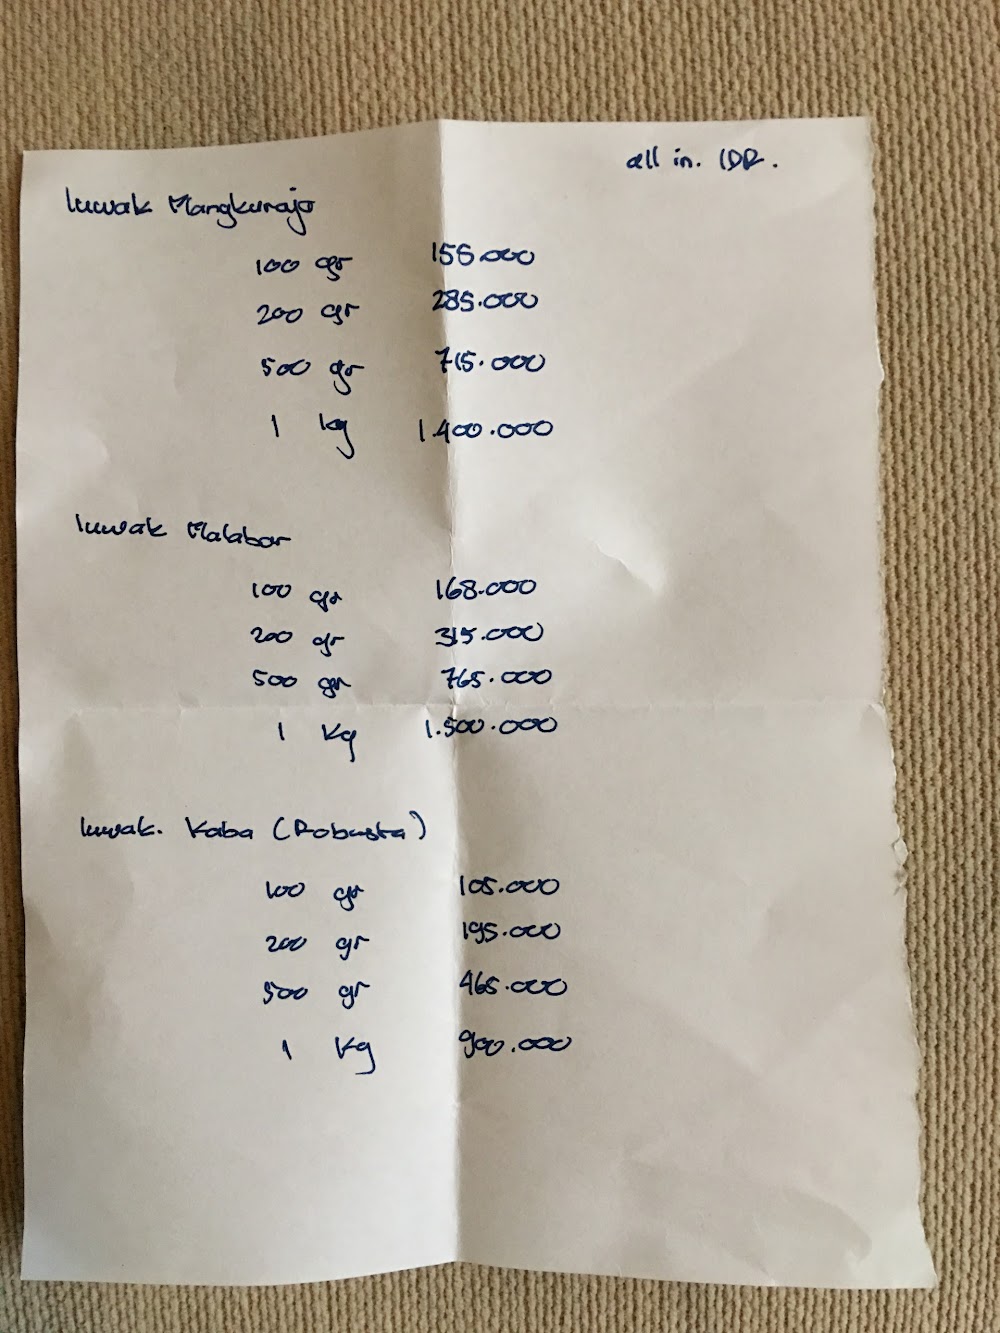 all in. IDR.
luwak Mangkurajo
100 gr 155.000
200 gr 285.000
500 gr 715.000
1 kg 1.400.000
luwak Malabar
100 gr 168.000
200 gr 315.000
500 gr 765.000
1 Kg 1.500.000
luwak. Kaba (Robusta)
100 gr 105.000
200 gr 195.000
500 gr 465.000
1 Kg 900.000